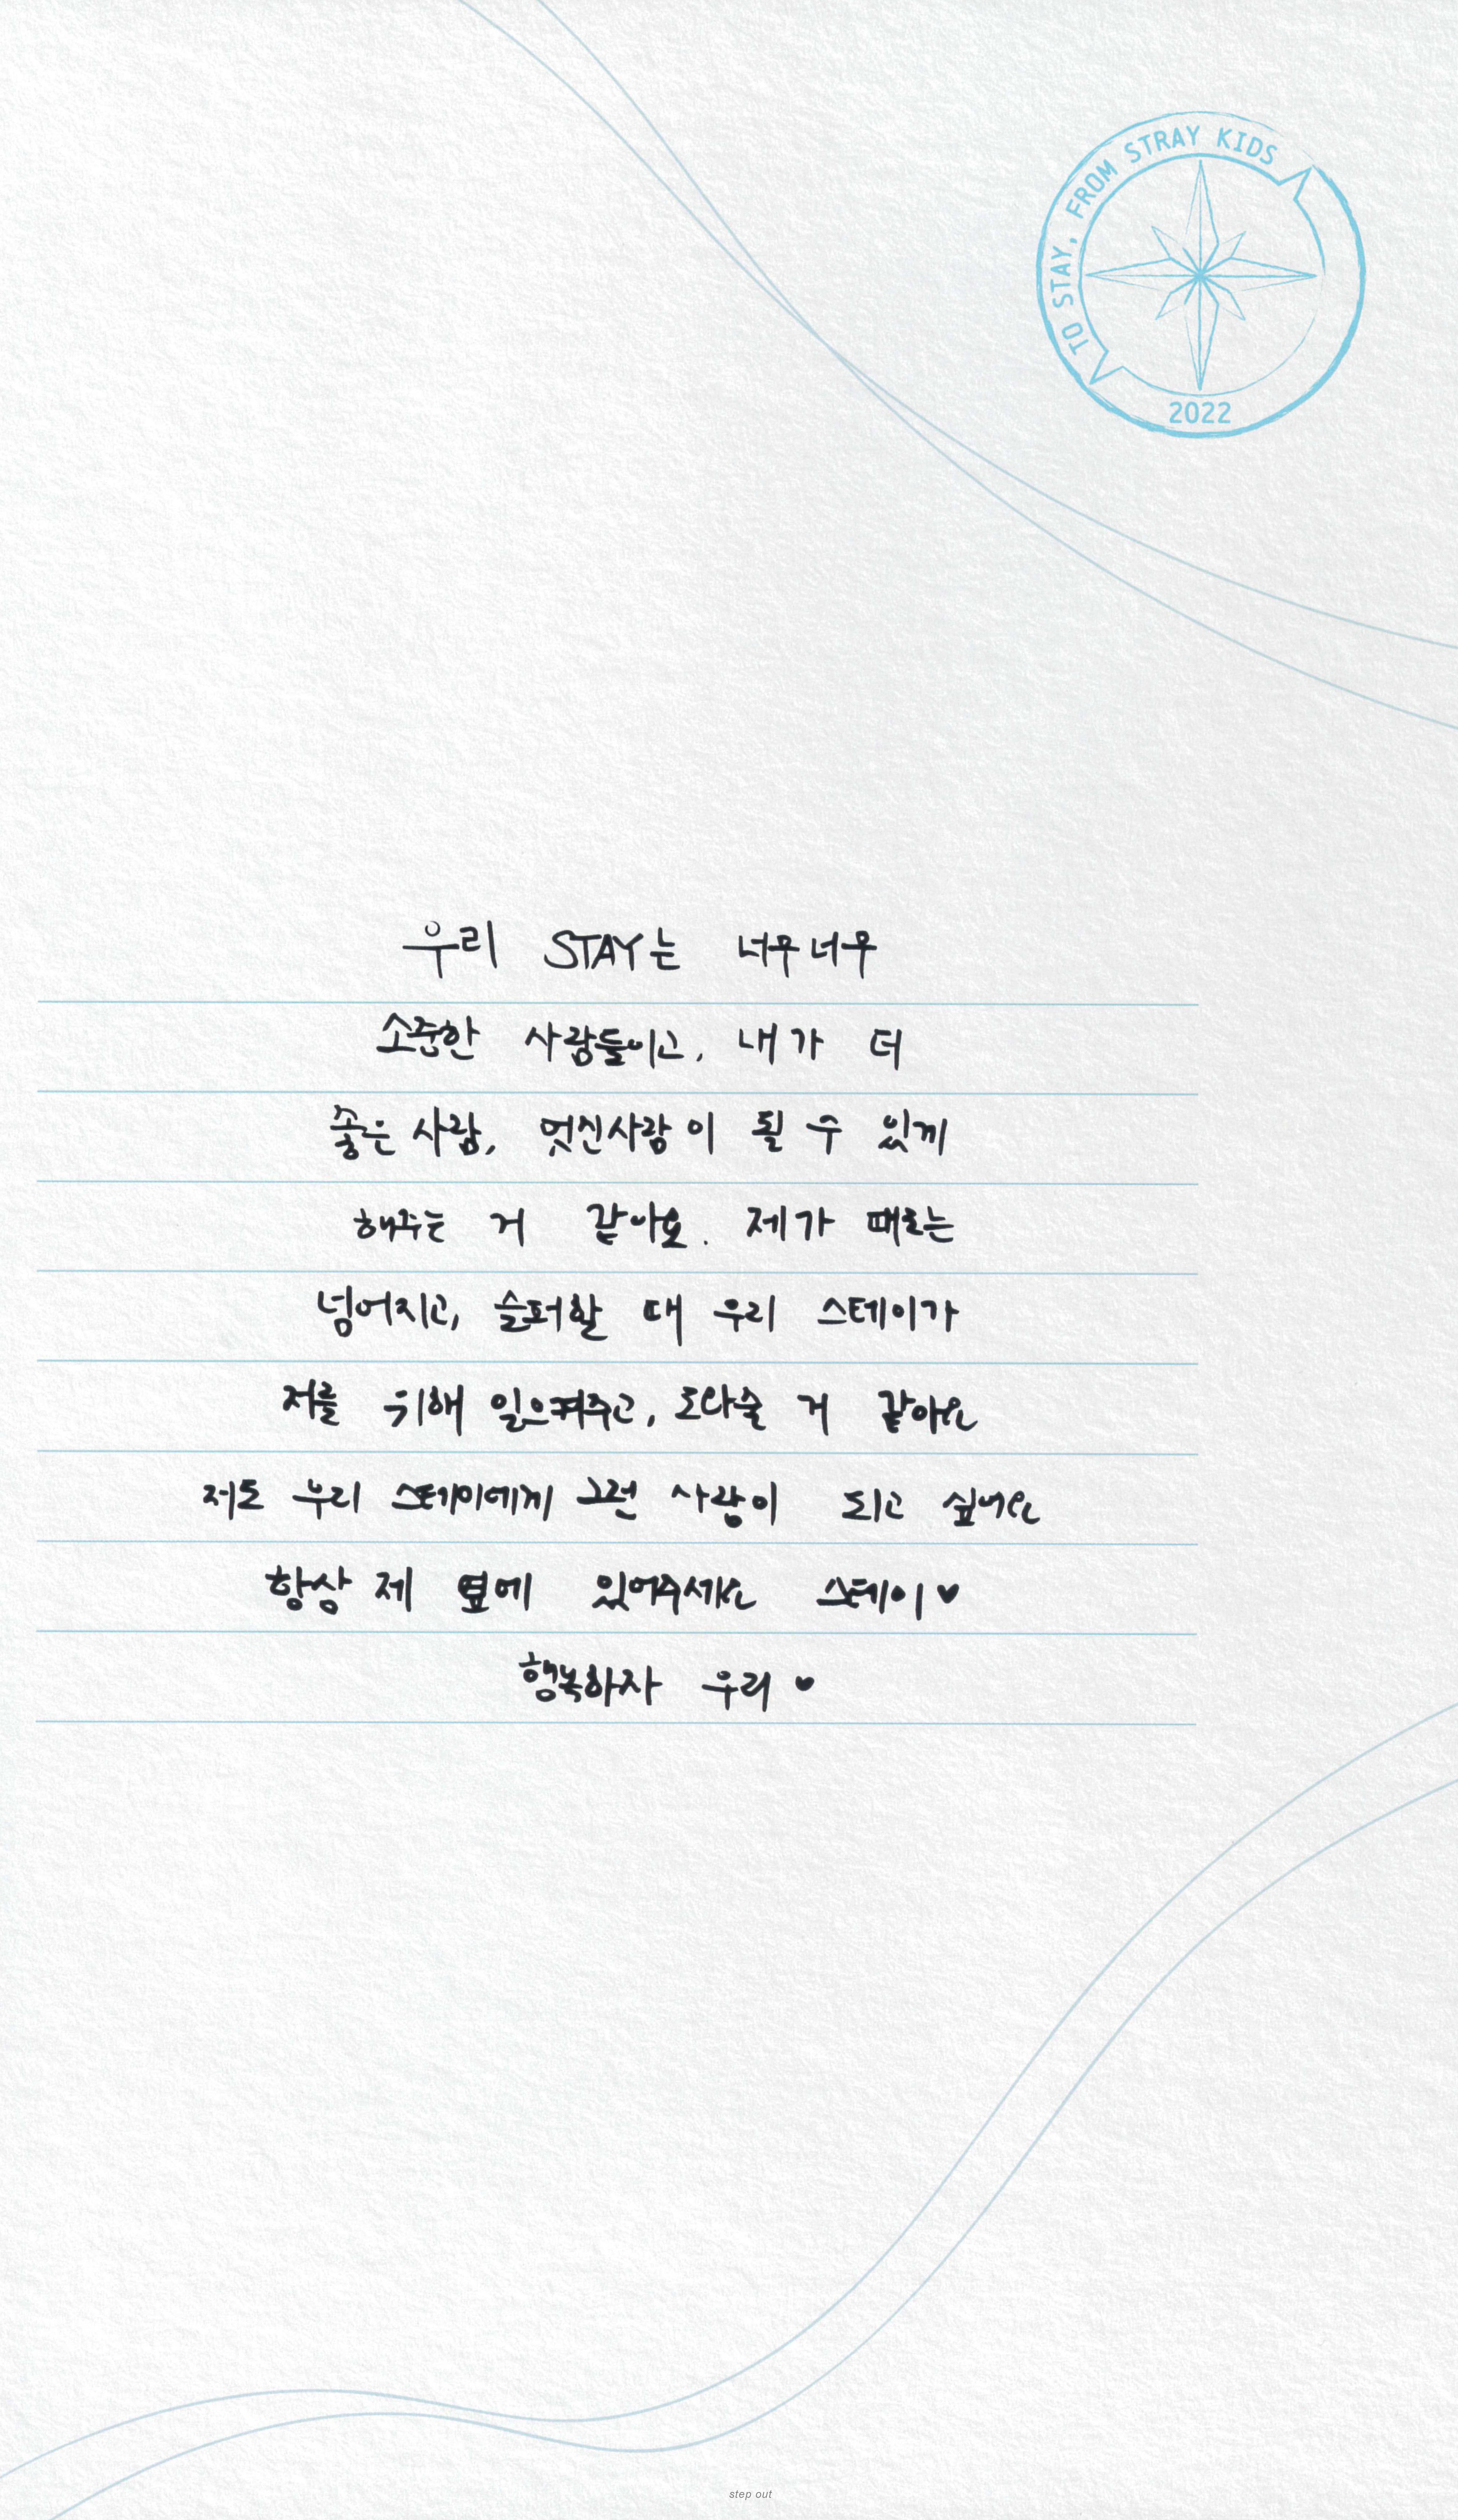 TO STAY, FROM STRAY KIDS
2022
우리 STAY는 너무너무
소중한 사람들이고, 내가 더
좋은 사람, 멋진사람이 될 수 있게
해주는 거 같아요. 제가 때로는
넘어지고, 슬퍼할 때 우리 스테이가
저를 위해 일으켜주고, 도와줄 거 같아요
저도 우리 스테이에게 그런 사람이 되고 싶어요
항상 제 옆에 있어주세요 스테이♥
행복하자 우리 ♥
step out